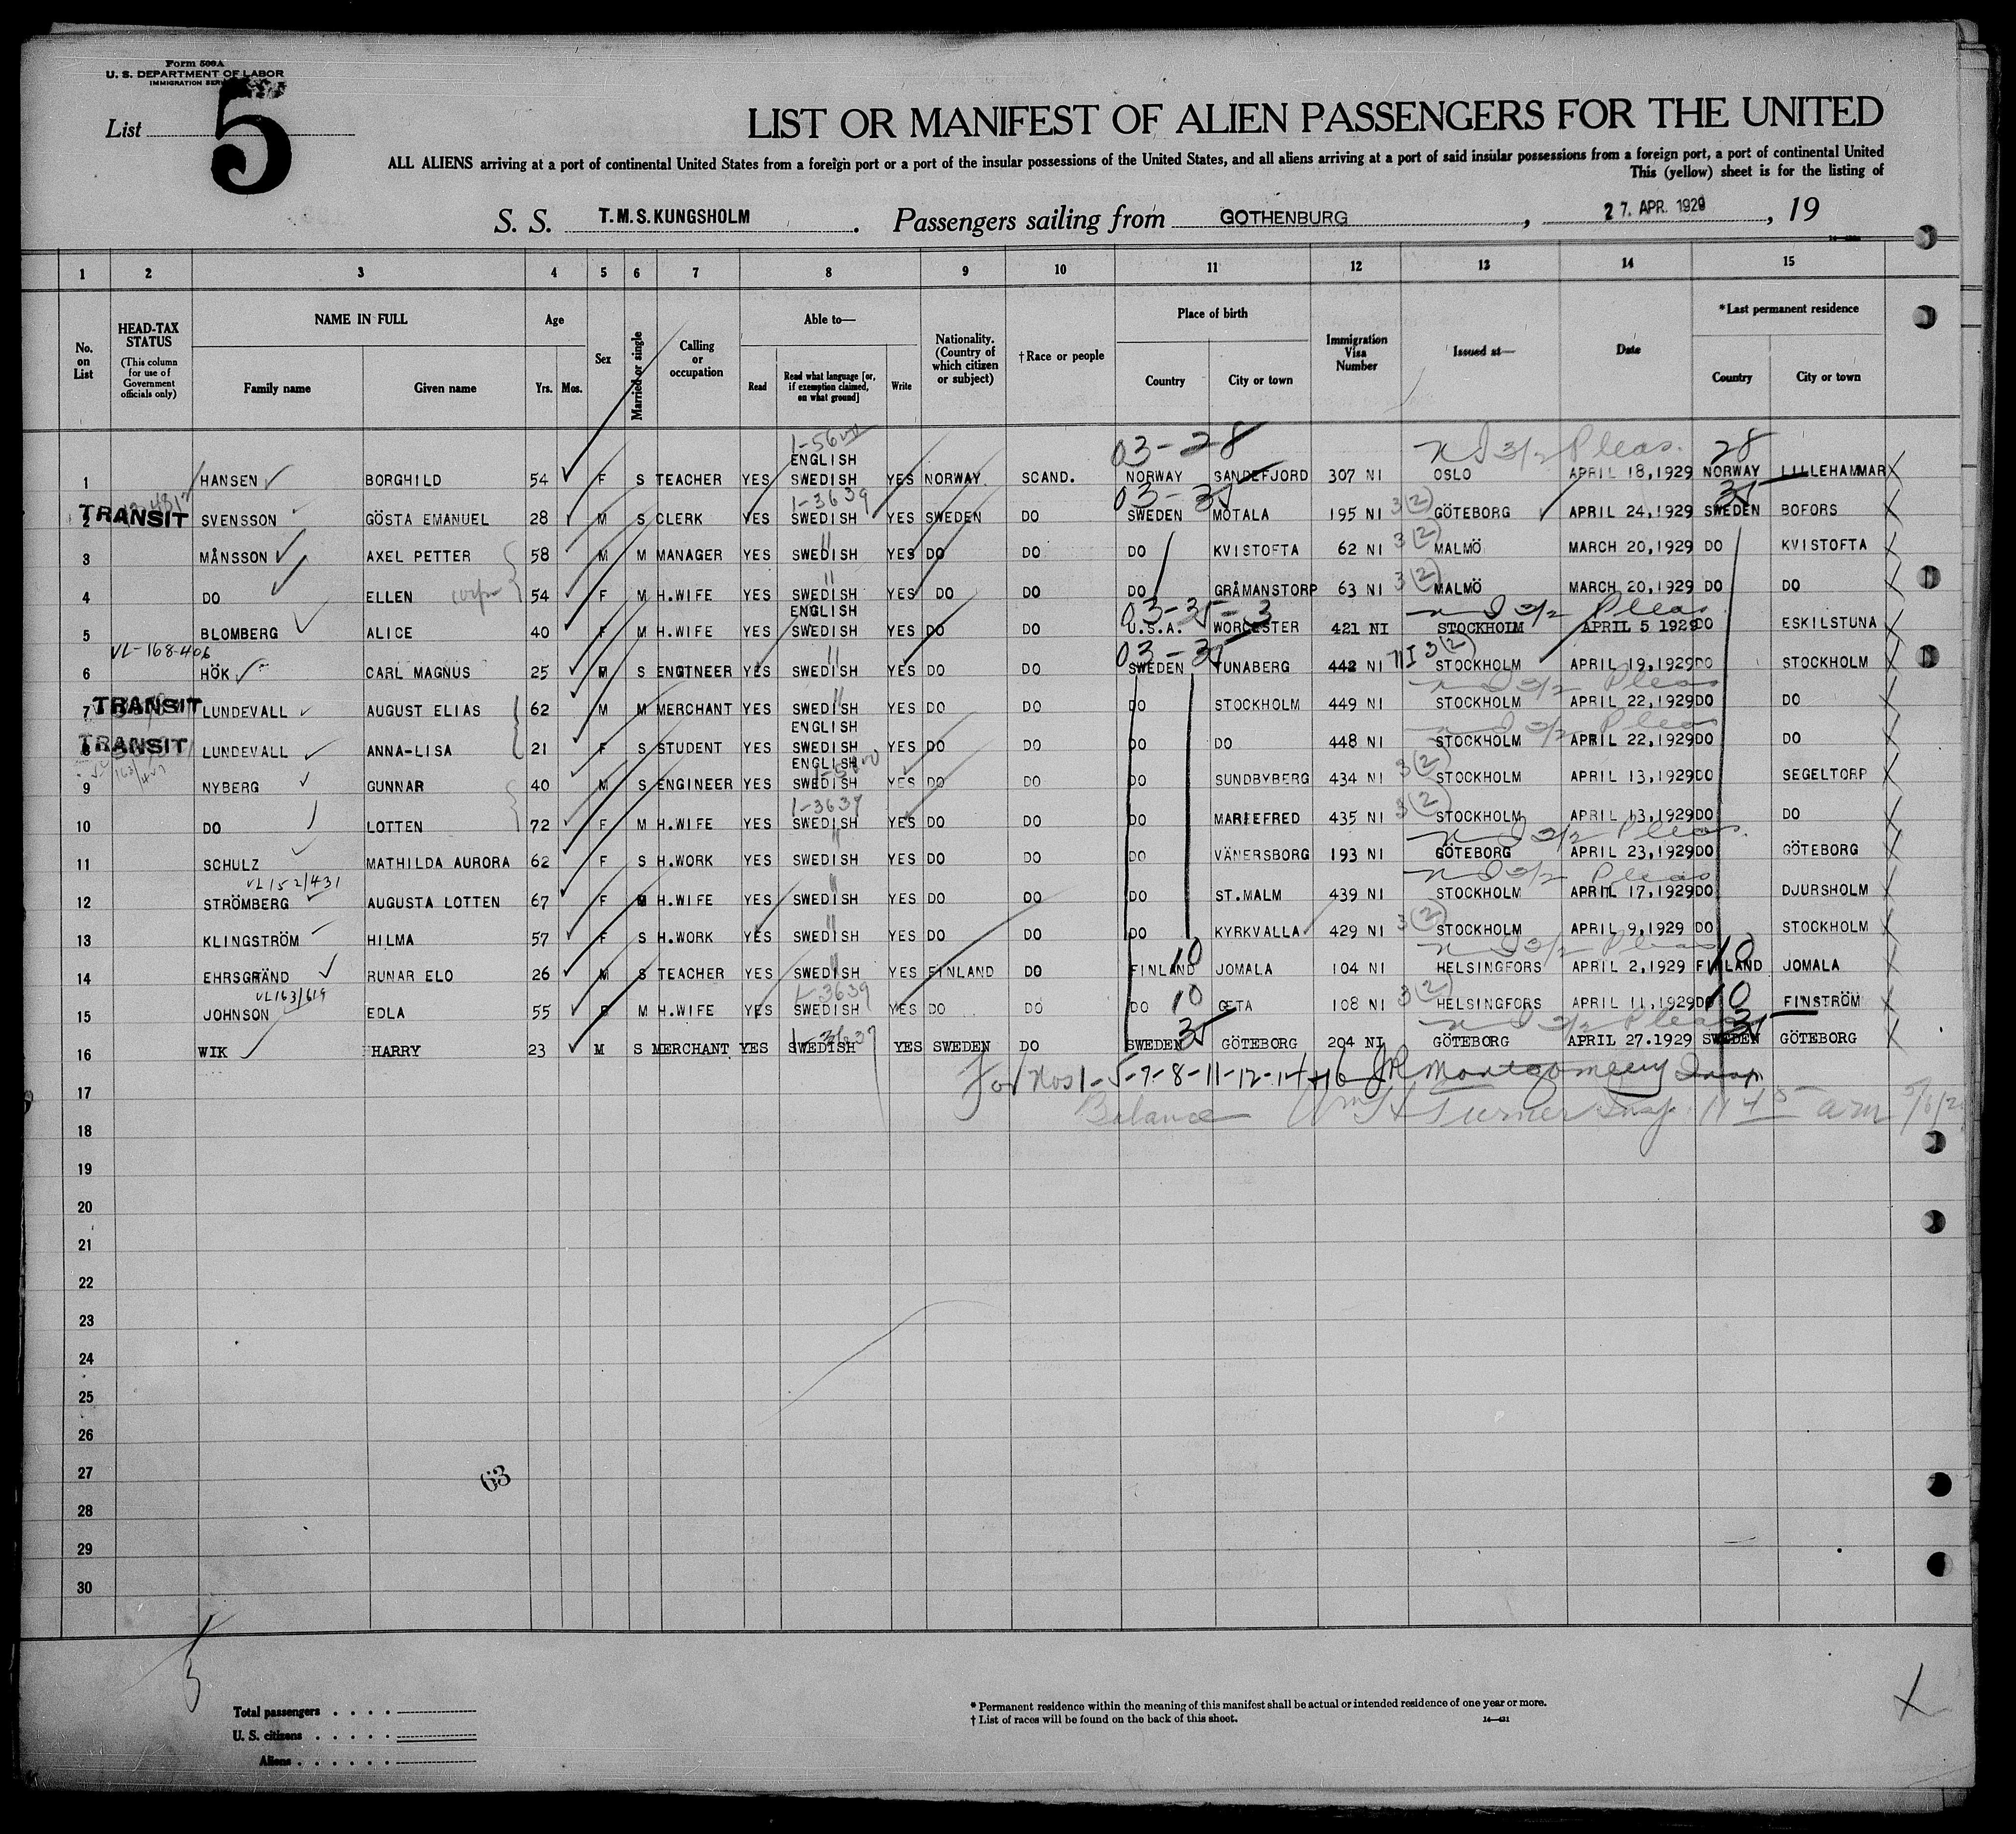 Form 500A
U. S. DEPARTMENT OF LABOR
IMMIGRATION
List 5
LIST OR MANIFEST OF ALIEN PASSENGERS FOR THE UNITED
ALL ALIENS arriving at a port of continental United States from a foreign port or a port of the insular possessions of the United States, and all aliens arriving at a port of said insular possessions from a foreign port, a port of continental United
This (yellow) sheet is for the listing of
S. S. T.M.S. KUNGSHOLM. Passengers sailing from GOTHENBURG, 27. APR. 1929, 19
1 2 3 4 5 6 7 8 9 10 11 12 13 14 15
No. on List
HEAD-TAX STATUS (This column for use of Government officials only)
NAME IN FULL Family name Given name
Age Yrs. Mos.
Sex
Married or single
Calling or occupation
Able to— Read Read what language [or, if exemption claimed, on what ground] Write
Nationality. (Country of which citizen or subject)
†Race or people
Place of birth Country City or town
Immigration Visa Number
Issued at—
Date
*Last permanent residence Country City or town
03-28 28
1 HANSEN BORGHILD 54 F S TEACHER YES ENGLISH SWEDISH YES NORWAY SCAND. NORWAY SANDEFJORD 307 NI OSLO APRIL 18,1929 NORWAY LILLEHAMMAR X
1-3639 03-35 3(2) 35
2 TRANSIT SVENSSON GÖSTA EMANUEL 28 M S CLERK YES SWEDISH YES SWEDEN DO SWEDEN MOTALA 195 NI GÖTEBORG APRIL 24,1929 SWEDEN BOFORS X
3 MÅNSSON AXEL PETTER 58 M M MANAGER YES " SWEDISH YES DO DO DO KVISTOFTA 62 NI 3(2) MALMÖ MARCH 20,1929 DO KVISTOFTA X
4 DO ELLEN 54 F M H.WIFE YES " SWEDISH YES DO DO DO GRÅMANSTORP 63 NI 3(2) MALMÖ MARCH 20,1929 DO DO X
03-35-3 3/2 Pleas
5 BLOMBERG ALICE 40 F M H.WIFE YES ENGLISH SWEDISH YES DO DO U.S.A. WORCESTER 421 NI STOCKHOLM APRIL 5 1929 DO ESKILSTUNA
VL-168-406 03-35 NI 3(2)
6 HÖK CARL MAGNUS 25 M S ENGINEER YES " SWEDISH YES DO DO SWEDEN TUNABERG 442 NI STOCKHOLM APRIL 19,1929 DO STOCKHOLM X
7 TRANSIT LUNDEVALL AUGUST ELIAS 62 M M MERCHANT YES " SWEDISH YES DO DO DO STOCKHOLM 449 NI STOCKHOLM APRIL 22,1929 DO DO X
8 TRANSIT LUNDEVALL ANNA-LISA 21 F S STUDENT YES ENGLISH SWEDISH YES DO DO DO DO 448 NI STOCKHOLM APRIL 22,1929 DO DO X
9 NYBERG GUNNAR 40 M S ENGINEER YES ENGLISH SWEDISH YES DO DO DO SUNDBYBERG 434 NI 3(2) STOCKHOLM APRIL 13,1929 DO SEGELTORP X
1-3639
10 DO LOTTEN 72 F M H.WIFE YES SWEDISH YES DO DO DO MARIEFRED 435 NI 3(2) STOCKHOLM APRIL 13,1929 DO DO X
11 SCHULZ MATHILDA AURORA 62 F S H.WORK YES " SWEDISH YES DO DO DO VÄNERSBORG 193 NI GÖTEBORG APRIL 23,1929 DO GÖTEBORG X
VL152/431
12 STRÖMBERG AUGUSTA LOTTEN 67 F M H.WIFE YES " SWEDISH YES DO DO DO ST.MALM 439 NI STOCKHOLM APRIL 17,1929 DO DJURSHOLM X
13 KLINGSTRÖM HILMA 57 F S H.WORK YES " SWEDISH YES DO DO DO KYRKVALLA 429 NI 3(2) STOCKHOLM APRIL 9,1929 DO STOCKHOLM X
10 10
14 EHRSGRÄND RUNAR ELO 26 M S TEACHER YES " SWEDISH YES FINLAND DO FINLAND JOMALA 104 NI HELSINGFORS APRIL 2,1929 FINLAND JOMALA X
VL163/619 1-3639
15 JOHNSON EDLA 55 F M H.WIFE YES SWEDISH YES DO DO DO 10 GETA 108 NI 3(2) HELSINGFORS APRIL 11,1929 DO 10 FINSTRÖM X
1-3639 35 35
16 WIK HARRY 23 M S MERCHANT YES SWEDISH YES SWEDEN DO SWEDEN GÖTEBORG 204 NI GÖTEBORG APRIL 27.1929 SWEDEN GÖTEBORG X
For Nos 1-5-7-8-11-12-14+16 JR Montgomery Insp
17
Balance Wm H Turner Insp. 11 45 am
18
19
20
21
22
23
24
25
26
27
63
28
29
30
5
Total passengers
U. S. citizens
Aliens
* Permanent residence within the meaning of this manifest shall be actual or intended residence of one year or more.
† List of races will be found on the back of this sheet.
14—431
X